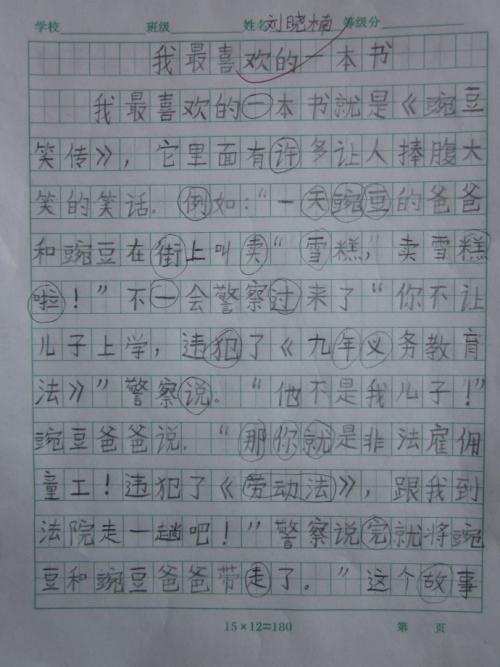 学校 班级 姓名 刘晓楠 等级分
我最喜欢的一本书
我最喜欢的一本书就是《豌豆
笑传》，它里面有许多让人捧腹大
笑的笑话。例如：“一天豌豆的爸爸
和豌豆在街上叫卖“雪糕，卖雪糕
啦！”不一会警察过来了“你不让
儿子上学，违犯了《九年义务教育
法》”警察说。“他不是我儿子！”
豌豆爸爸说。“那你就是非法雇佣
童工！违犯了《劳动法》，跟我到
法院走一趟吧！”警察说完就将豌
豆和豌豆爸爸带走了。”这个故事
15×12=180 第 页